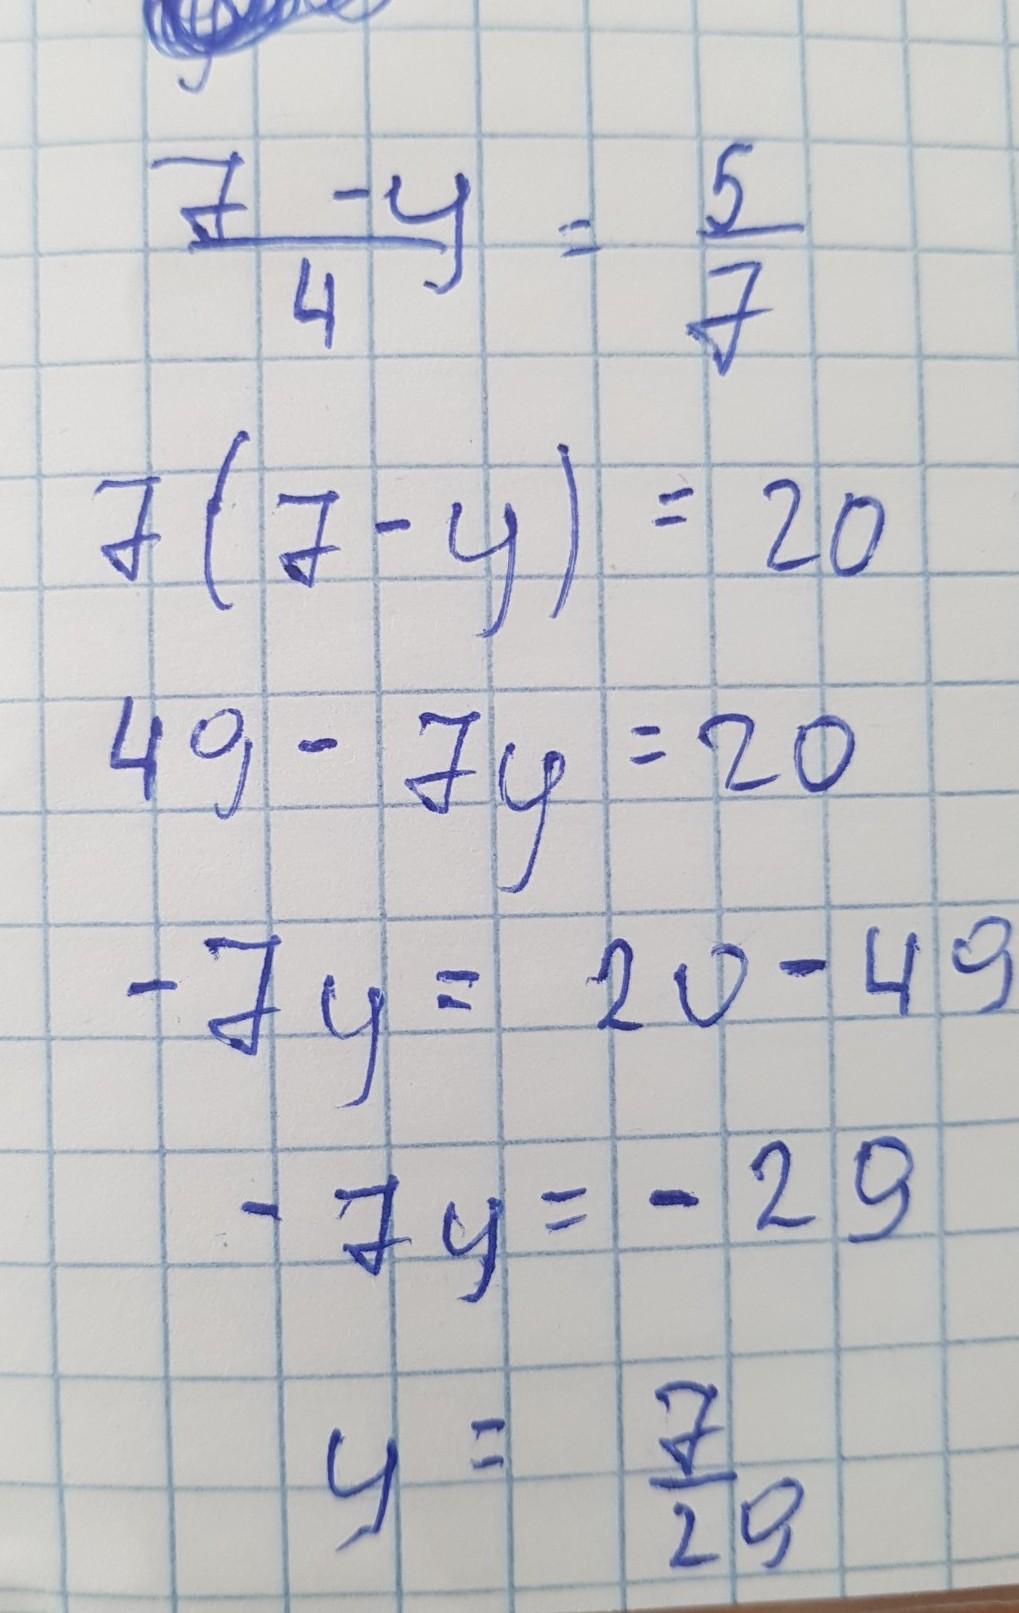 (7 - y)/4 = 5/7
7(7 - y) = 20
49 - 7y = 20
-7y = 20 - 49
-7y = -29
y = 7/29